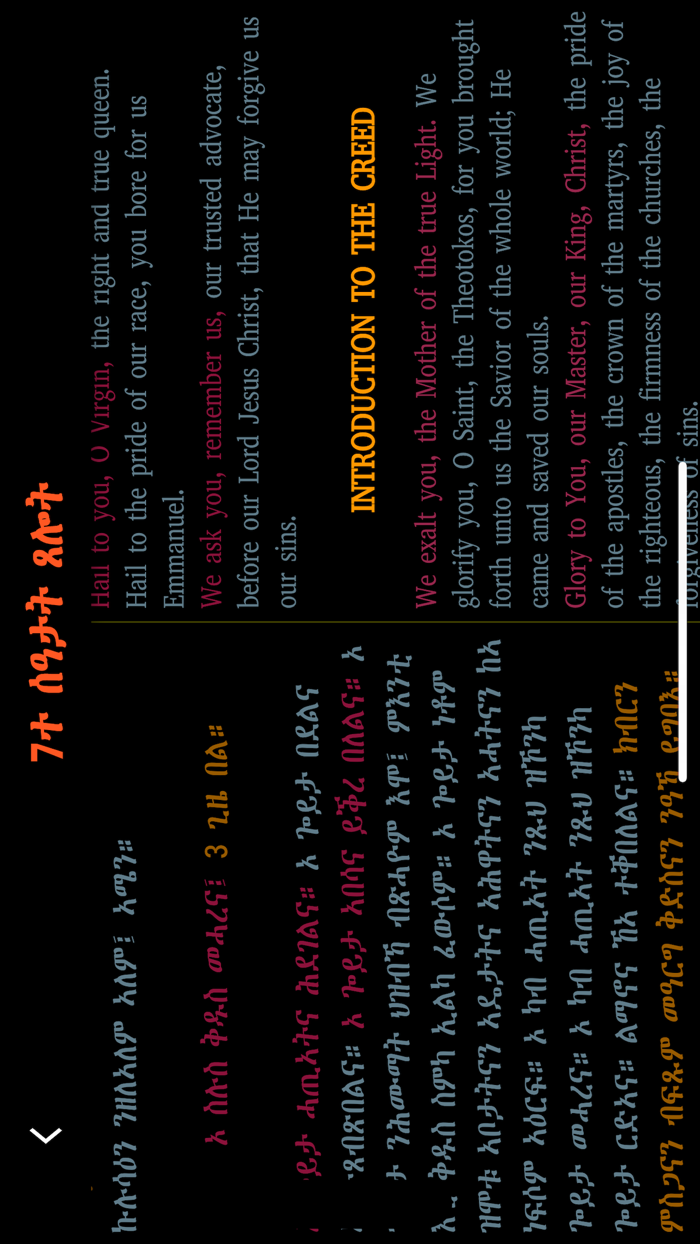 7ት ሰዓታት ጸሎት
ንዘለአለም አለም፤ አሜን።
ኦ ስሉስ ቅዱስ መሓረና፤ 3 ጊዜ በል።
ሓጢአትና ሕደገልና። ኦ ጐይታ በደልና
ኦ ጐይታ አበሳና ይቕረ በለልና። ኦ
ታ ንሕሙማት ህዝብኻ ብጽሓዮም እሞ፤ ምእንቲ
ቅዱስ ስምካ ኢልካ ፈውሶም። ኦ ጐይታ ነቶም
ዝሞቱ አቦታትናን አዴታትና አሕዋትናን አሓትናን ከአ
ነፍሶም አዕርፍ። ኦ ካብ ሓጢአት ንጹህ ዝኾንካ
ጐይታ መሓረና። ኦ ካብ ሓጢአት ንጹህ ዝኾንካ
ጐይታ ርድአና። ልማኖና ኸአ ተቐበለልና። ክብርን
ምስጋናን ብፍጹም መዓርግ ቅድስናን ንዓኻ ይግባእ።
Hail to you, O Virgin, the right and true queen.
Hail to the pride of our race, you bore for us
Emmanuel.
We ask you, remember us, our trusted advocate,
before our Lord Jesus Christ, that He may forgive us
our sins.
INTRODUCTION TO THE CREED
We exalt you, the Mother of the true Light. We
glorify you, O Saint, the Theotokos, for you brought
forth unto us the Savior of the whole world; He
came and saved our souls.
Glory to You, our Master, our King, Christ, the pride
of the apostles, the crown of the martyrs, the joy of
the righteous, the firmness of the churches, the
forgiveness of sins.